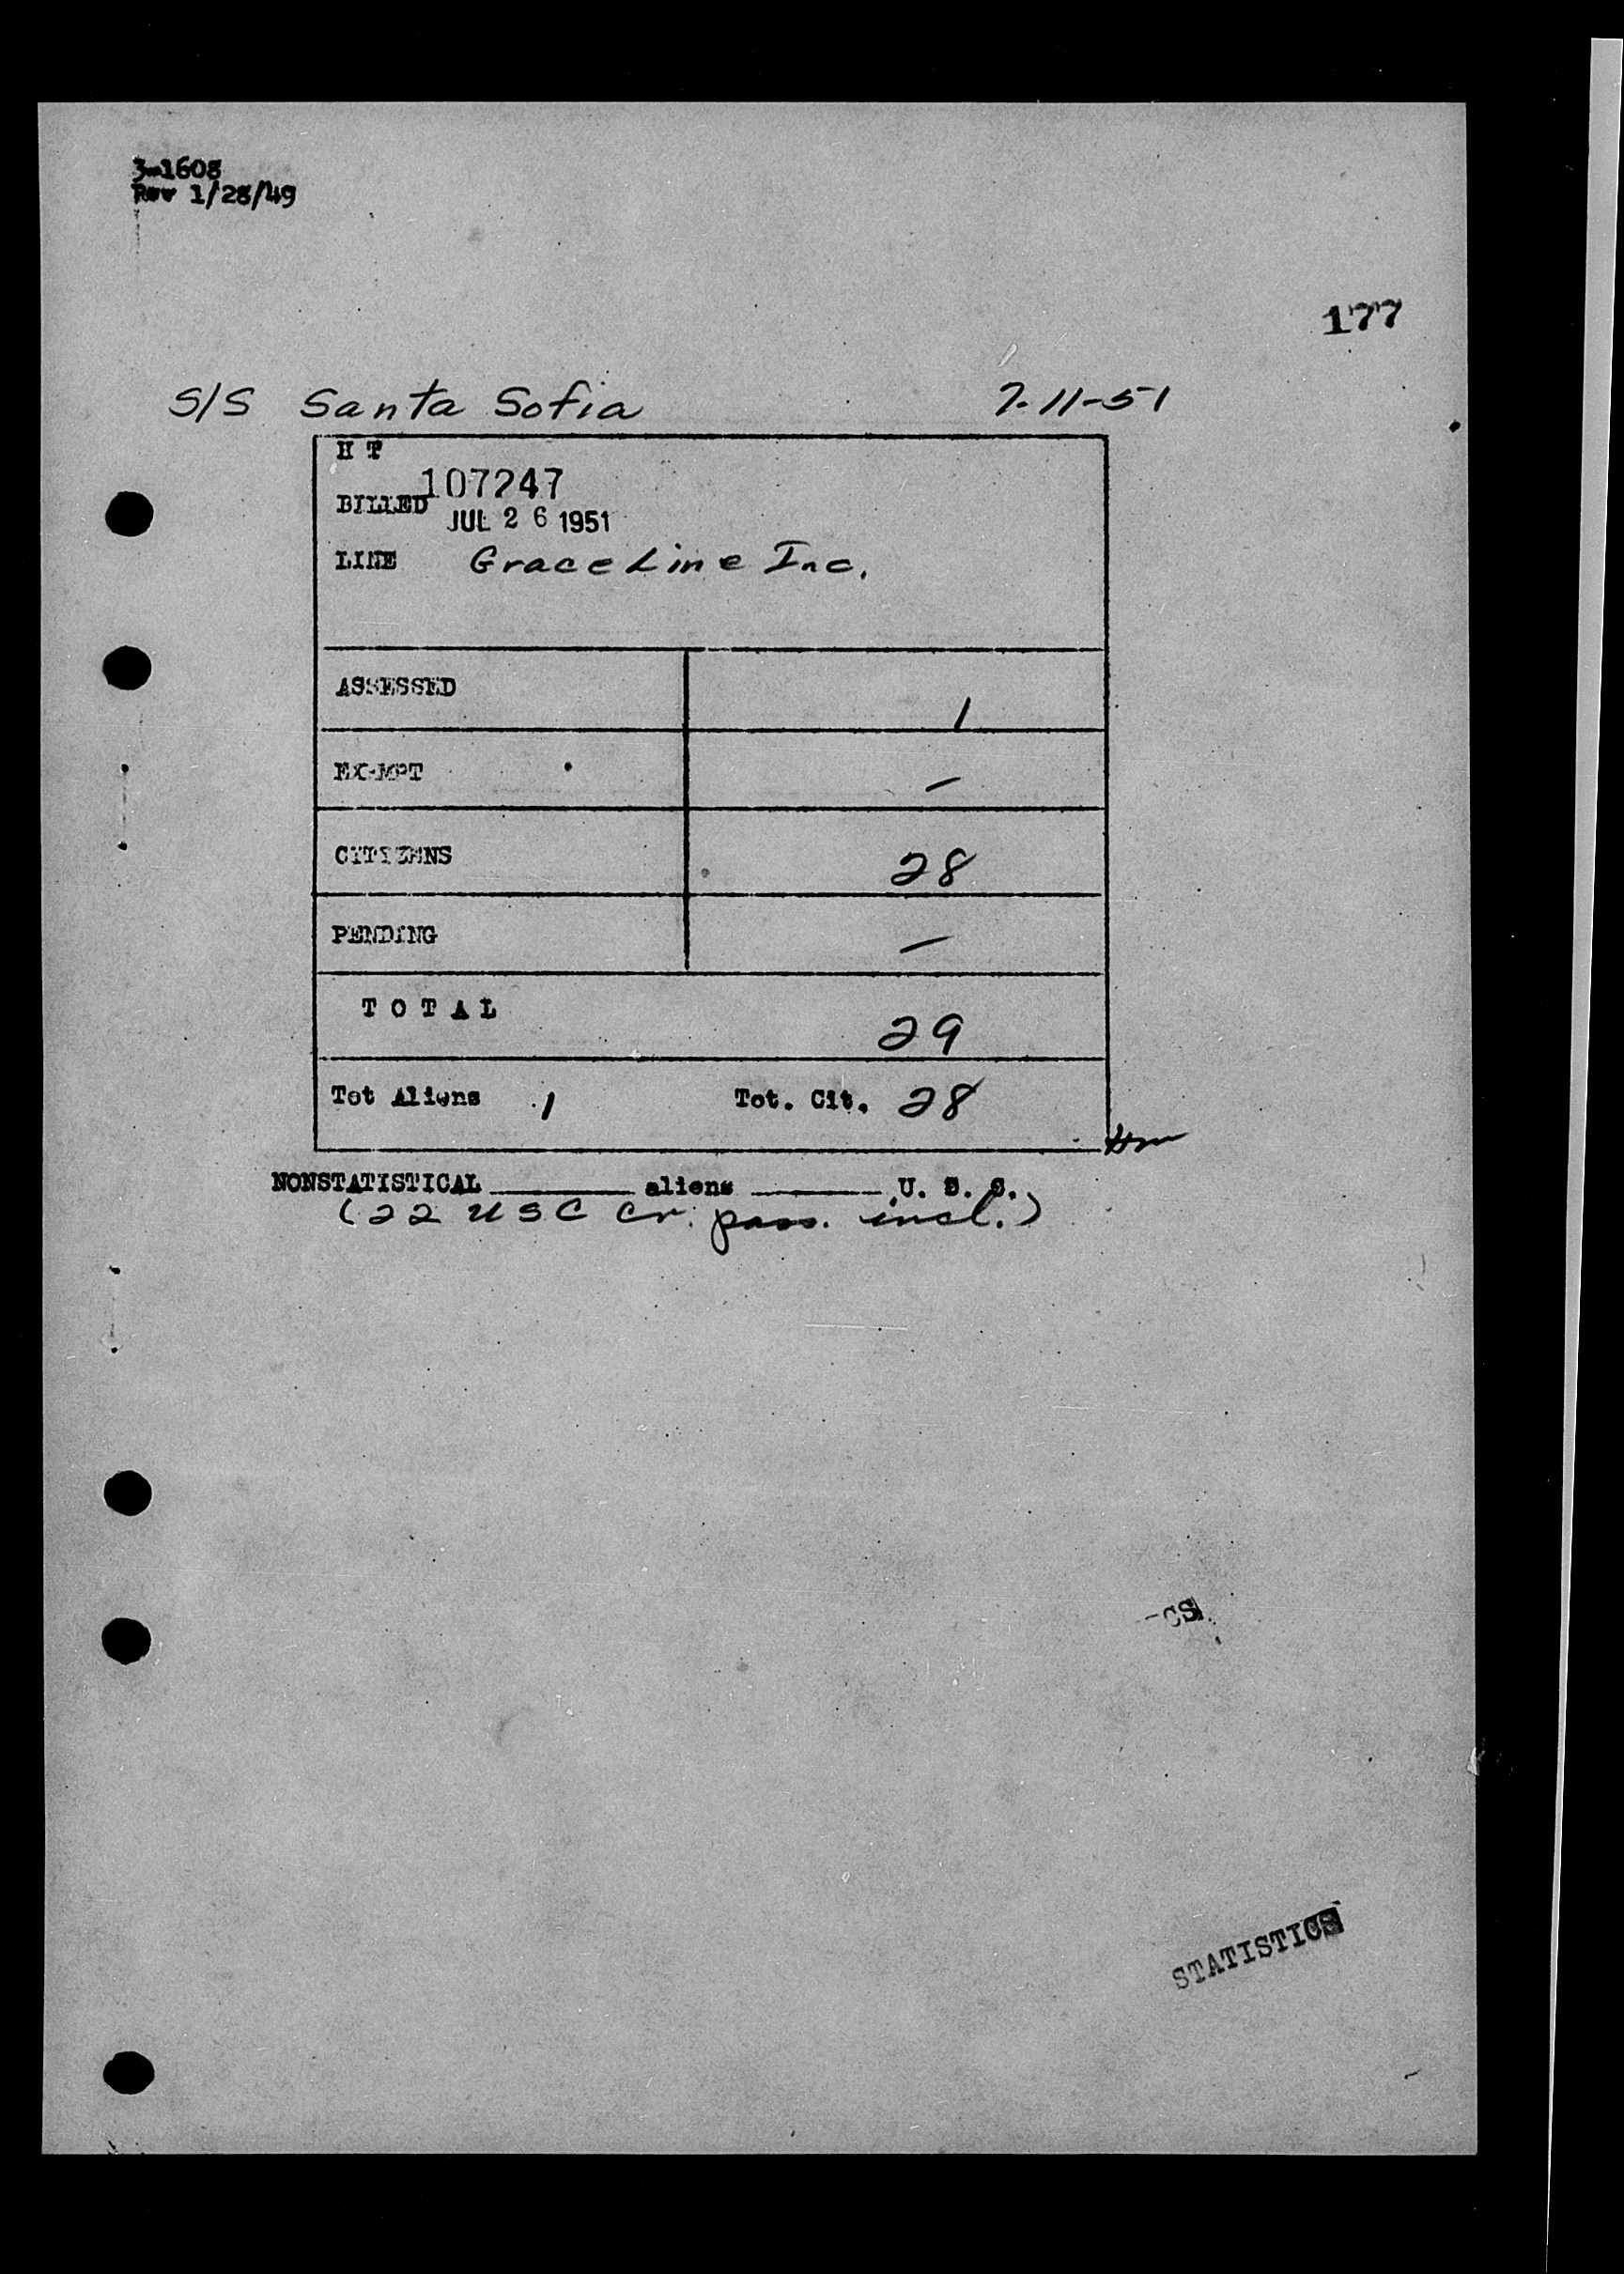 3-1608
Rev 1/28/49
177
S/S Santa Sofia 7-11-51
H T
107247
BILLED
JUL 26 1951
LINE Grace Line Inc.
ASSESSED 1
EXEMPT –
CITIZENS 28
PENDING –
T O T A L 29
Tot Aliens 1 Tot. Cit. 28
NONSTATISTICAL ______ aliens ______ U. S. C.
(22 USC Cr. pass. incl.)
-CS
STATISTICS